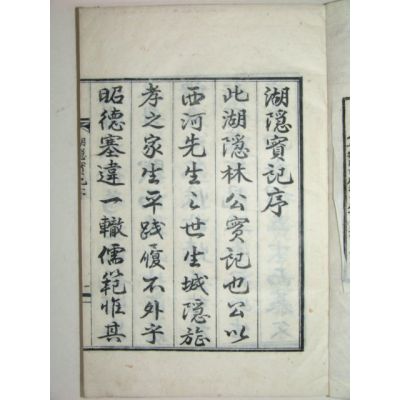 湖隱實記序
此湖隱林公實記也公以
西河先生之世生城隱旌
孝之家生平踐履不外乎
昭德塞違一轍儒範惟其